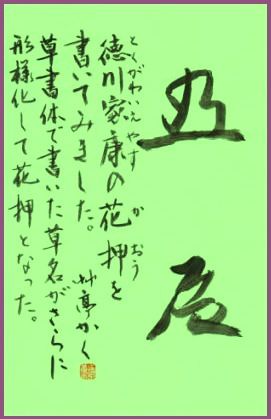 とくがわいえやす
徳川家康の花押を
かおう
書いてみました。
艸亭かく
草書体で書いた草名がさらに
形様化して花押となった。